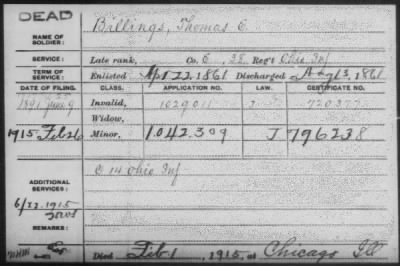 DEAD
NAME OF SOLDIER: Billings, Thomas C.
SERVICE: Late rank, Co. C, Reg't Ohio Inf
TERM OF SERVICE: Enlisted Apr 22, 1861 Discharged 1861
DATE OF FILING. CLASS. APPLICATION NO. LAW. CERTIFICATE NO.
1891 Invalid, 1029011 720377
Widow,
1915 Feb 26 Minor, 1,042,309 J 796238
ADDITIONAL SERVICES: C 14 Ohio Inf
6/22.1915
REMARKS:
Died Feb 1, 1915, at Chicago Ill